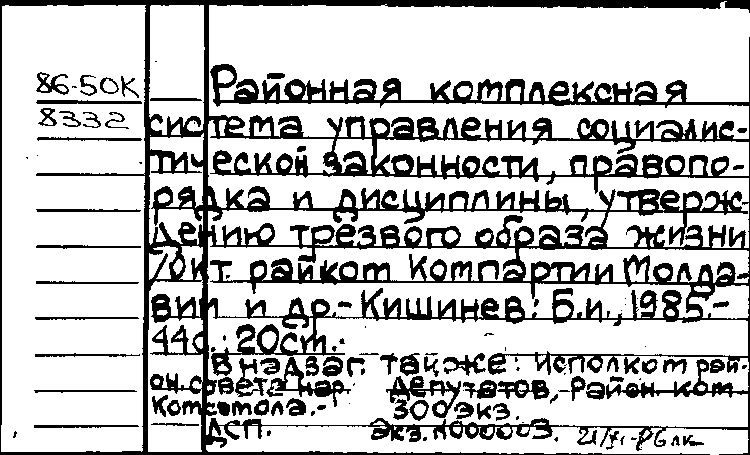 86-50К
8332
Районная комплексная
система управления социалис-
тической законности, правопо-
рядка и дисциплины, утверж-
дению трезвого образа жизни
/Окт. райком Компартии Молда-
вии и др.- Кишинев: Б.и., 1985.-
44с.; 20см.-
В надзаг. также: Исполком рай-
он. совета нар. депутатов, Район. ком.
Комсомола.- 300экз.
ДСП. Экз.N000003. 21/XI-86